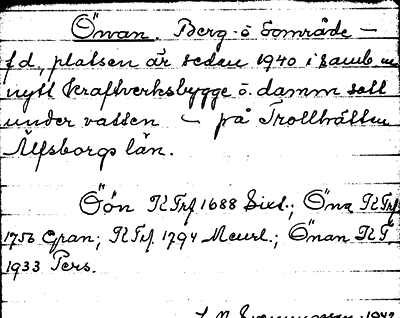 Önan. Berg- o. område –
f.d., platsen är sedan 1940 i samb. m
nytt kraftverksbygge o. damm satt
under vatten – på Trollhättan
Älfsborgs län.
Öön RTrf 1688 Sixl.; Öna RTrf
1756 Gran; RTrf. 1794 Meurl.; Önan RT.
1933 Pers.
1942